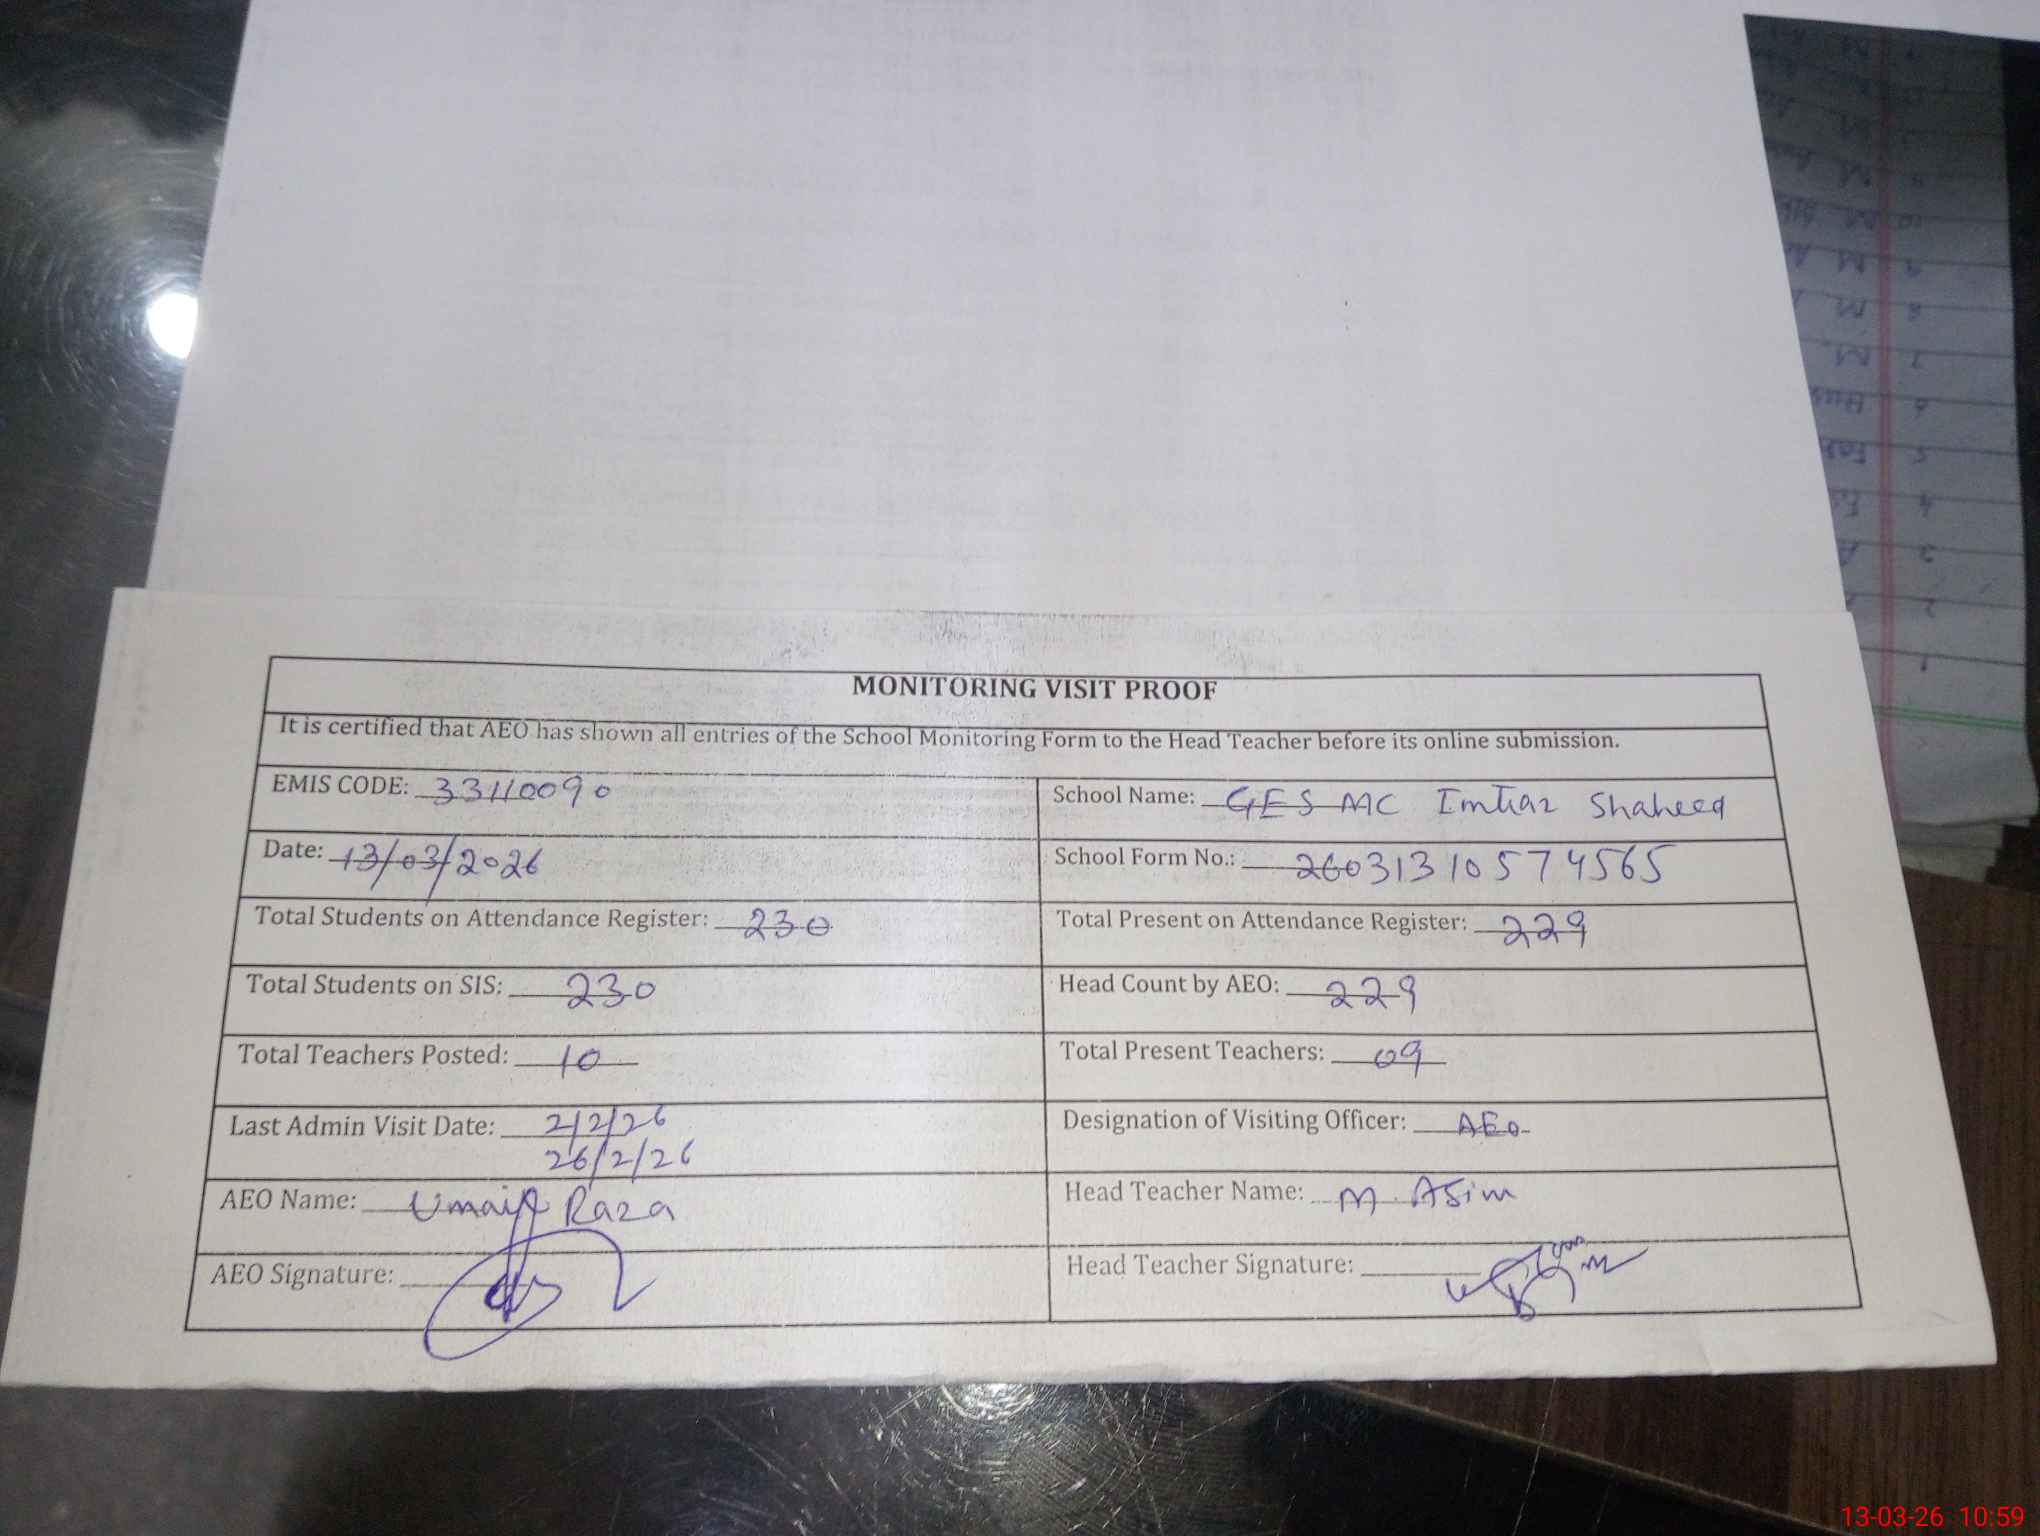 MONITORING VISIT PROOF
It is certified that AEO has shown all entries of the School Monitoring Form to the Head Teacher before its online submission.
EMIS CODE: 33110090
School Name: GES MC Imtiaz Shaheed
Date: 13/03/2026
School Form No.: 26031310574565
Total Students on Attendance Register: 230
Total Present on Attendance Register: 229
Total Students on SIS: 230
Head Count by AEO: 229
Total Teachers Posted: 10
Total Present Teachers: 09
Last Admin Visit Date: 2/2/26
26/2/26
Designation of Visiting Officer: AEO
AEO Name: Umair Raza
Head Teacher Name: M. Asim
AEO Signature:
Head Teacher Signature:
13-03-26 10:59